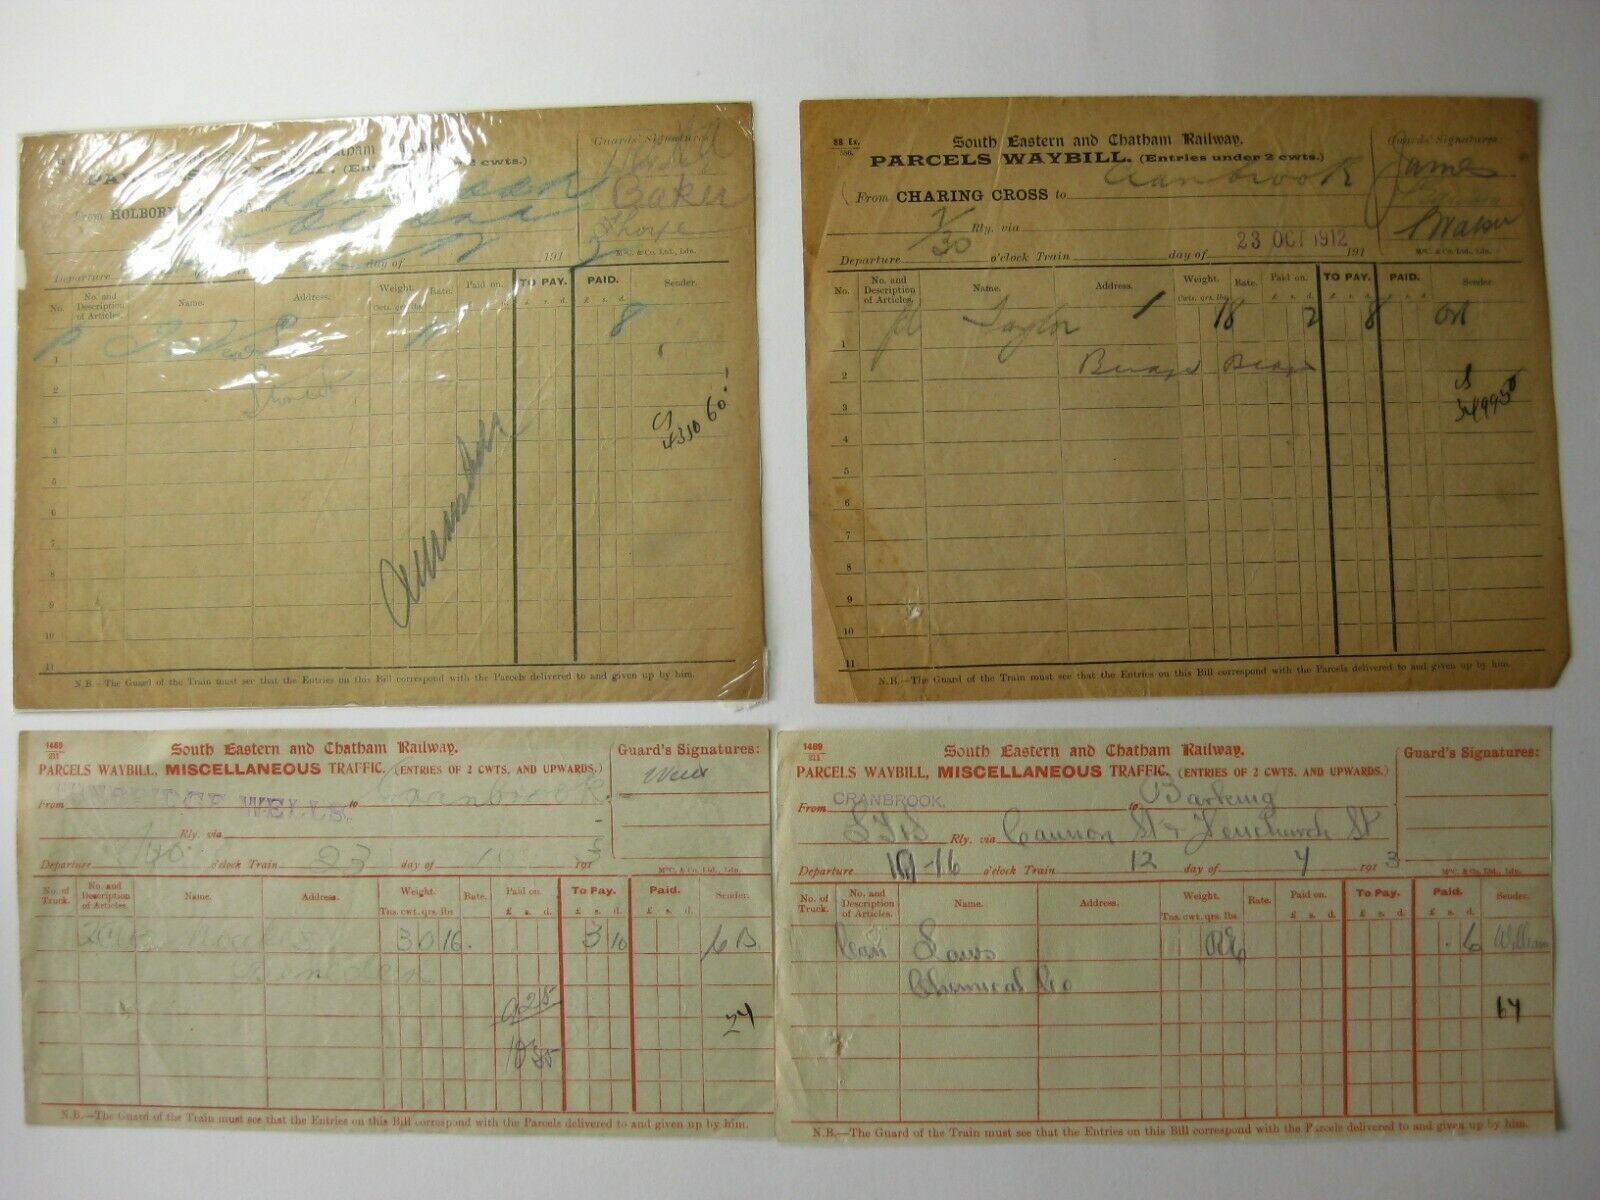 Chatham
Guards' Signatures:
(En
2 cwts.)
From HOLBORN
to
Baker
Thorpe
Departure
day of
191
2
McC. & Co. Ltd., Ldn.
No. No. and Description of Articles. Name. Address. Weight. Rate. Paid on. TO PAY. PAID. Sender.
Cwts. qrs. lbs. £ s. d. £ s. d.
8
1
2
3
4310 60
4
5
6
7
8
9
10
11
N.B.—The Guard of the Train must see that the Entries on this Bill correspond with the Parcels delivered to and given up by him.
88 Ex.
South Eastern and Chatham Railway.
Guards' Signatures:
PARCELS WAYBILL. (Entries under 2 cwts.)
James
From CHARING CROSS to Cranbrook
Rly. via
7/30
23 OCT 1912
Departure o'clock Train day of 191
McC. & Co. Ltd., Ldn.
No. No. and Description of Articles. Name. Address. Weight. Rate. Paid on. TO PAY. PAID. Sender.
Cwts. qrs. lbs. £ s. d. £ s. d. £ s. d.
Taylor 1 18 2 8
1
2
3
4
5
6
7
8
9
10
11
N.B.—The Guard of the Train must see that the Entries on this Bill correspond with the Parcels delivered to and given up by him.
1489
211
South Eastern and Chatham Railway.
Guard's Signatures:
PARCELS WAYBILL, MISCELLANEOUS TRAFFIC. (ENTRIES OF 2 CWTS. AND UPWARDS.)
From TUNBRIDGE WELLS. to Cranbrook
Rly. via
Departure o'clock Train 23 day of 191
McC. & Co. Ltd., Ldn.
No. of Truck. No. and Description of Articles. Name. Address. Weight. Rate. Paid on. To Pay. Paid. Sender.
Tns. cwt. qrs. lbs £ s. d. £ s. d. £ s. d.
3 0 16. 3 10
24
N.B.—The Guard of the Train must see that the Entries on this Bill correspond with the Parcels delivered to and given up by him.
1489
211
South Eastern and Chatham Railway.
Guard's Signatures:
PARCELS WAYBILL, MISCELLANEOUS TRAFFIC. (ENTRIES OF 2 CWTS. AND UPWARDS.)
From CRANBROOK. to Barking
Rly. via Cannon St & Fenchurch St
Departure -16 o'clock Train 12 day of 7 1913
McC. & Co. Ltd., Ldn.
No. of Truck. No. and Description of Articles. Name. Address. Weight. Rate. Paid on. To Pay. Paid. Sender.
Tns. cwt. qrs. lbs £ s. d. £ s. d. £ s. d.
Can Laws 6 William
Chemical Co
64
N.B.—The Guard of the Train must see that the Entries on this Bill correspond with the Parcels delivered to and given up by him.